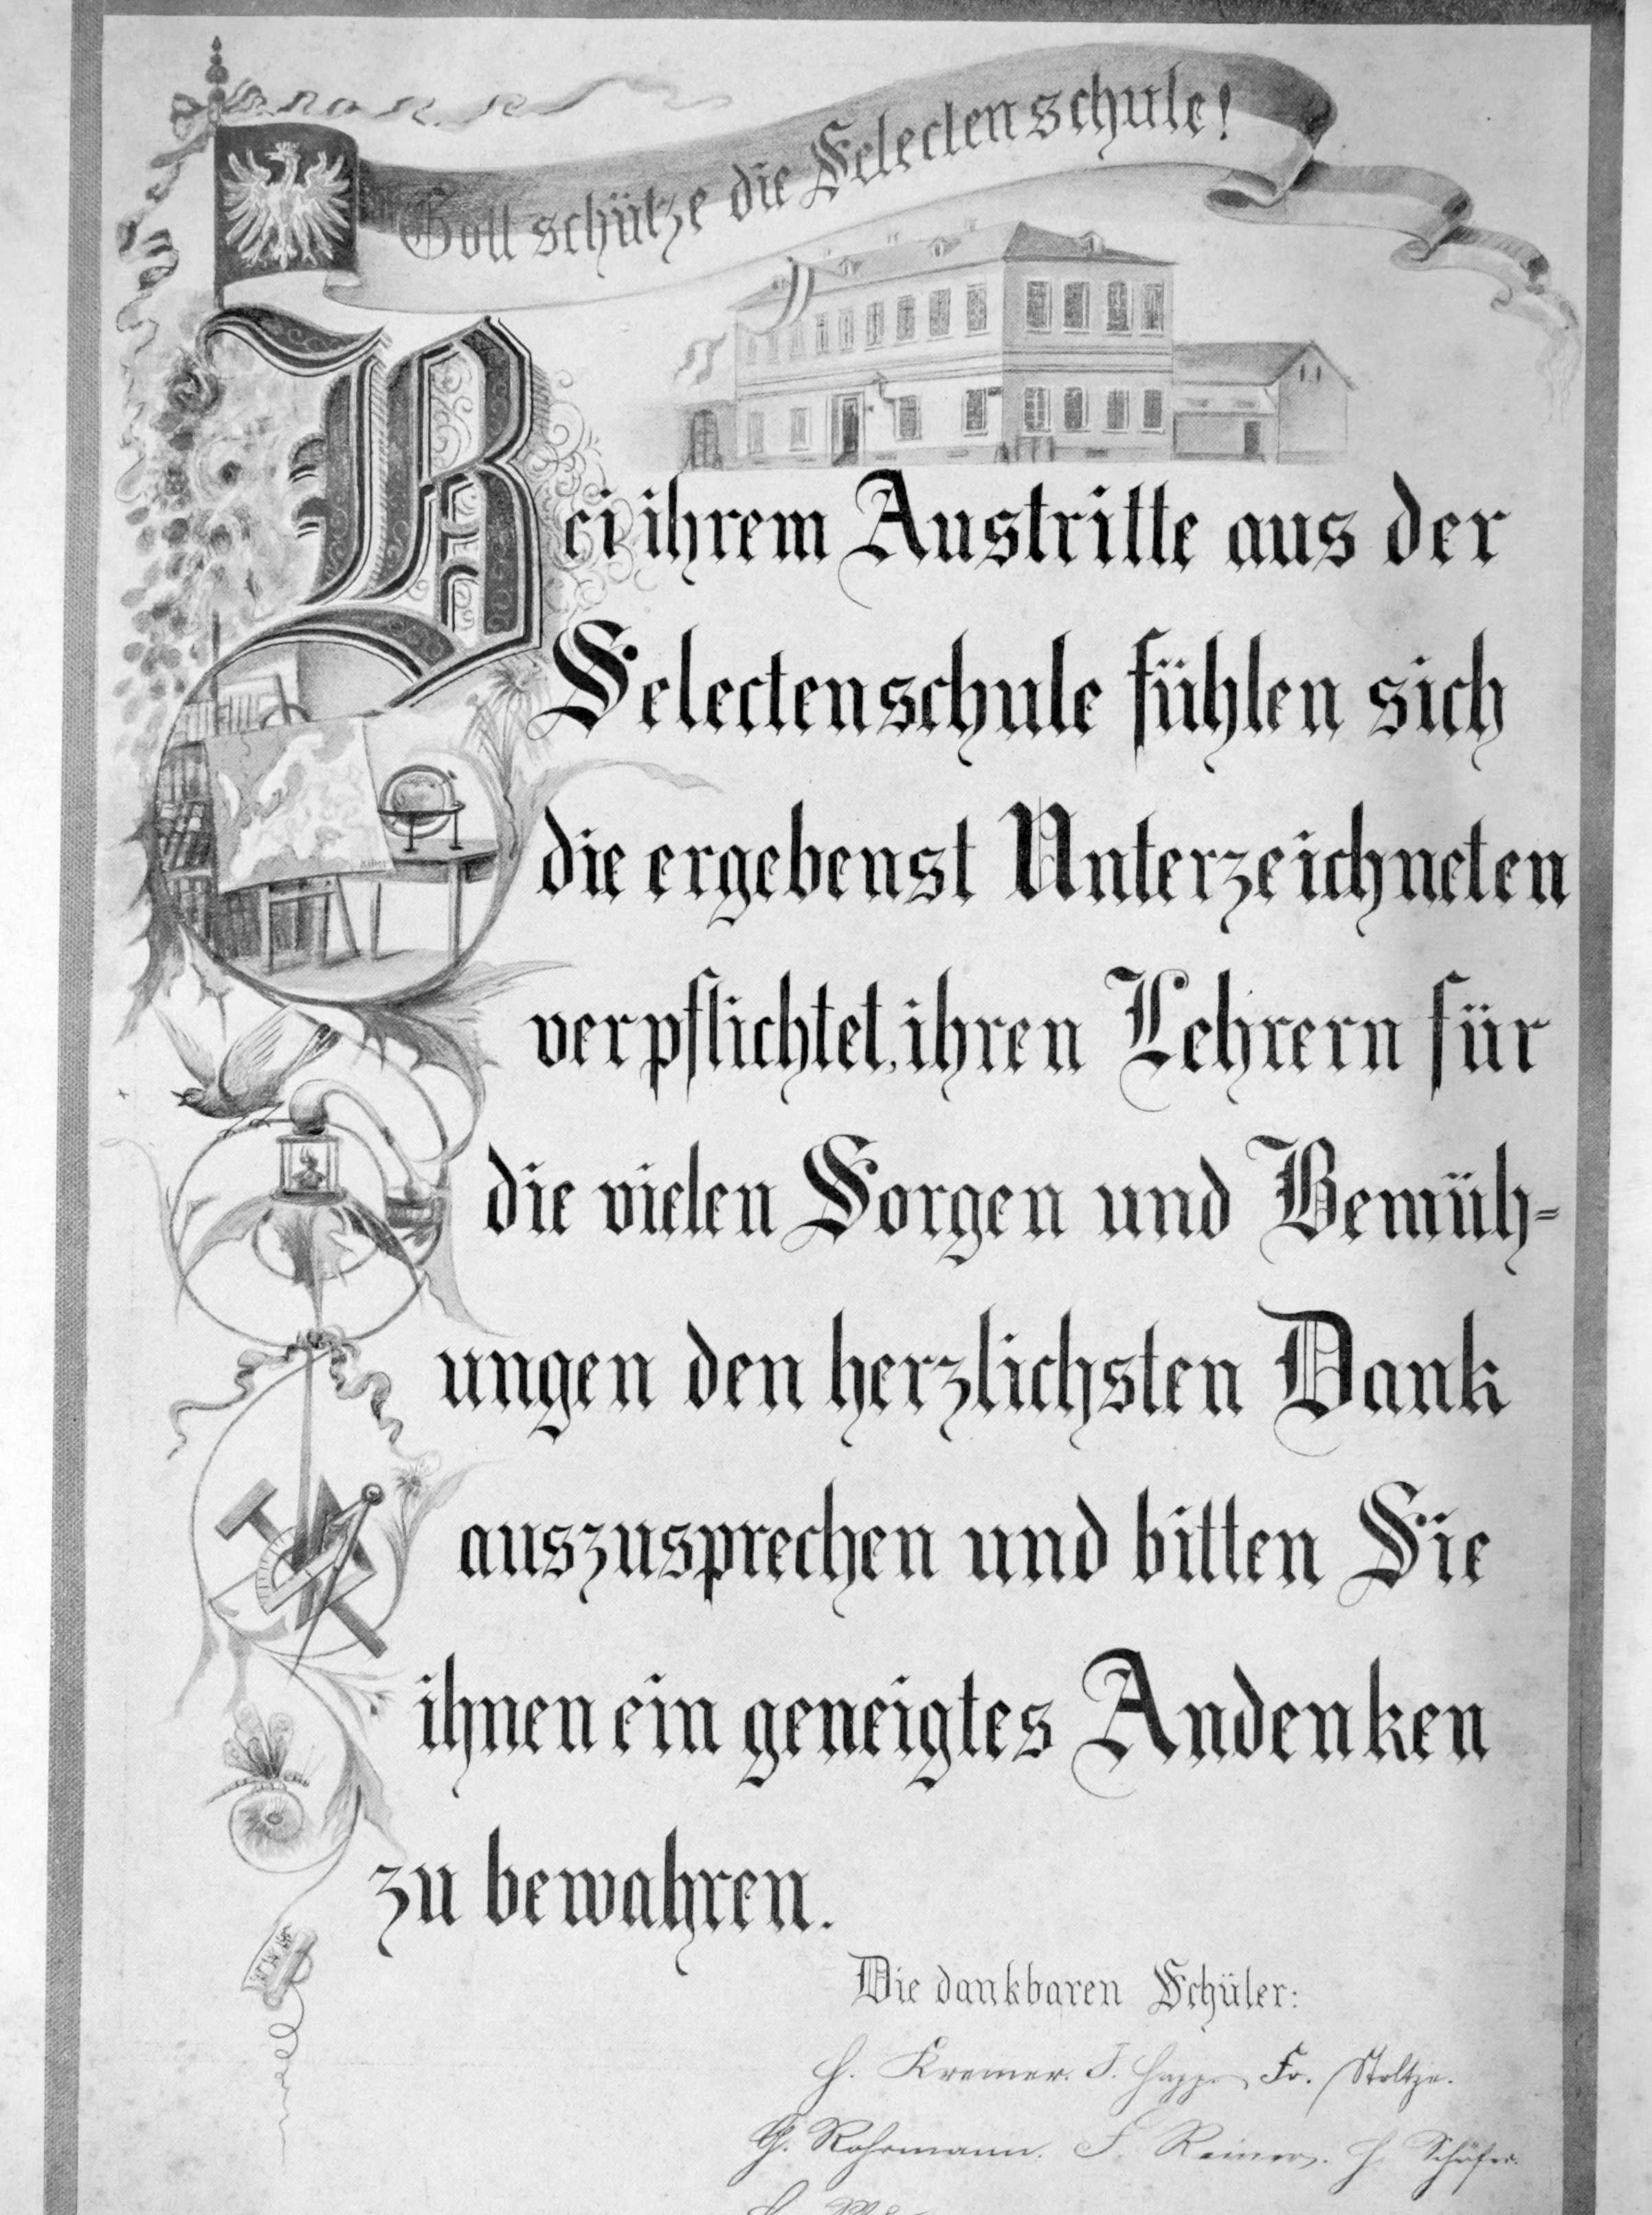 Gott schütze die Selectenschule!
Bei ihrem Austritte aus der
Selectenschule fühlen sich
die ergebenst Unterzeichneten
verpflichtet, ihren Lehrern für
die vielen Sorgen und Bemüh=
ungen den herzlichsten Dank
auszusprechen und bitten Sie
ihnen ein geneigtes Andenken
zu bewahren.
Die dankbaren Schüler:
H. Kremer. J. Happ. Fr. Stoltze.
G. Rohrmann. F. Reiner. H. Schäfer.